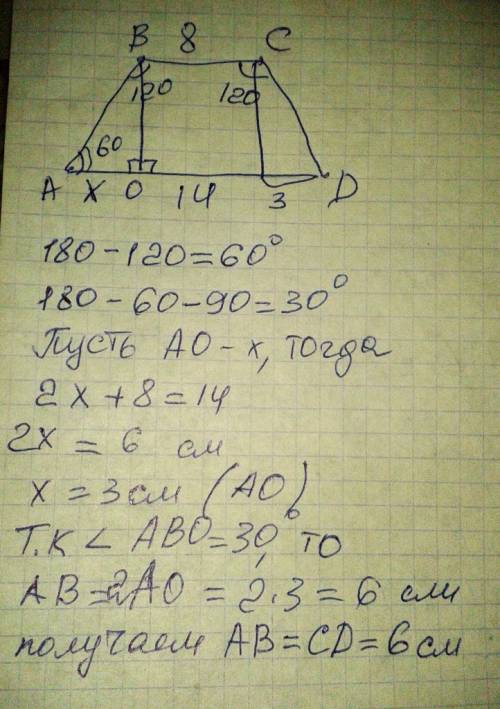 B 8 C
120 120
60
A x O 14 3 D
180-120=60°
180-60-90=30°
Пусть АО-х, тогда
2x+8=14
2x = 6 см
x = 3 см (АО)
Т.к < АВО=30°, то
АВ=2АО = 2·3 = 6 см
получаем АВ=CD=6см